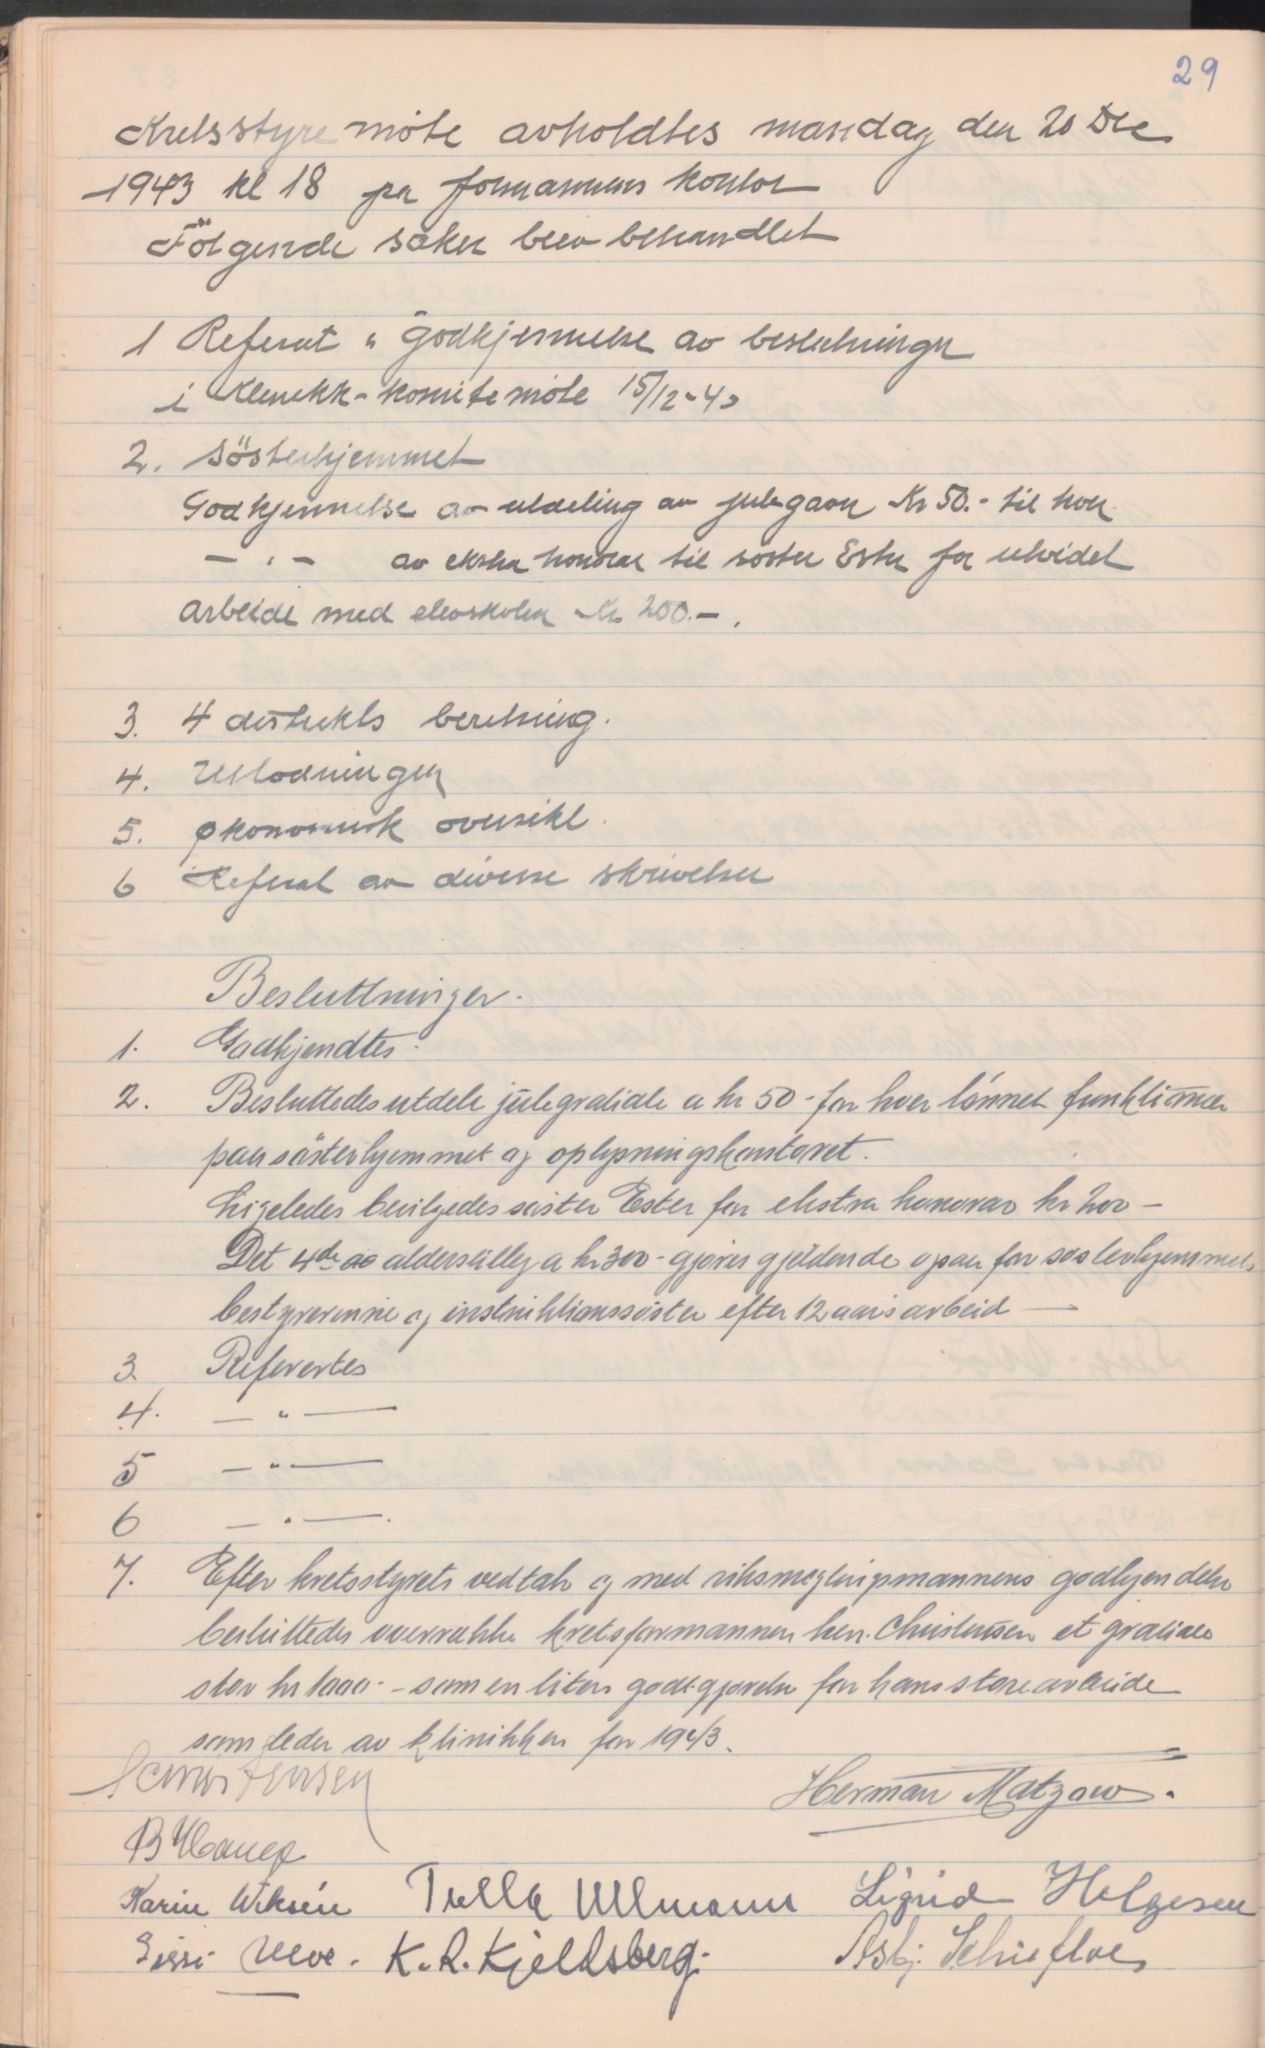 29
Kretsstyremöte avholdtes mandag den 20 Dec
1943 kl 18 pa formannens kontor
Følgende saker blev behandlet
1 Referat " Godkjennelse av beslutninger
i Klinikk-komitemöte 15/12-43
2. Sösterhjemmet
Godkjennelse av utdeling av julegaver Kr 50.- til hver
— " — av ekstra honorar til söster Ester for utvidet
arbeide med elevskolen Kr 200.-.
3. 4 distrikts beretning.
4. Utlodningen
5. Økonomisk oversikt.
6 Referat av diverse skrivelser
Besluttninger.
1. Godkjendtes.
2. Besluttedes utdele julegratiale a kr 50- for hver lönnet funktionær
paa sösterhjemmet og oplysningskontoret.
Ligeledes bevilgedes söster Ester for ekstra honorar kr 200 -
Det 4de alderstillæg a kr 300- gjöres gjeldende ogsaa for sösterhjemmets
bestyrerinne og instruktionssöster efter 12 aars arbeid —
3. Referertes
4. — " —
5 — " —
6 — " —.
7. Efter kretsstyrets vedtak og med godkjendelse
besluttedes overrække kretsformannen herr. Christensen et gratiale
stor kr 1000.- som en liten godtgjørelse for hans store arbeide
som leder av klinikken for 1943.
Christensen
Herman Matzow.
B Hauge
Karin Wiksén Tulla Ullmann Sigrid Helgesen
Sissi Ulve. K. R. Kjeldsberg. Asbj. Schiefloe